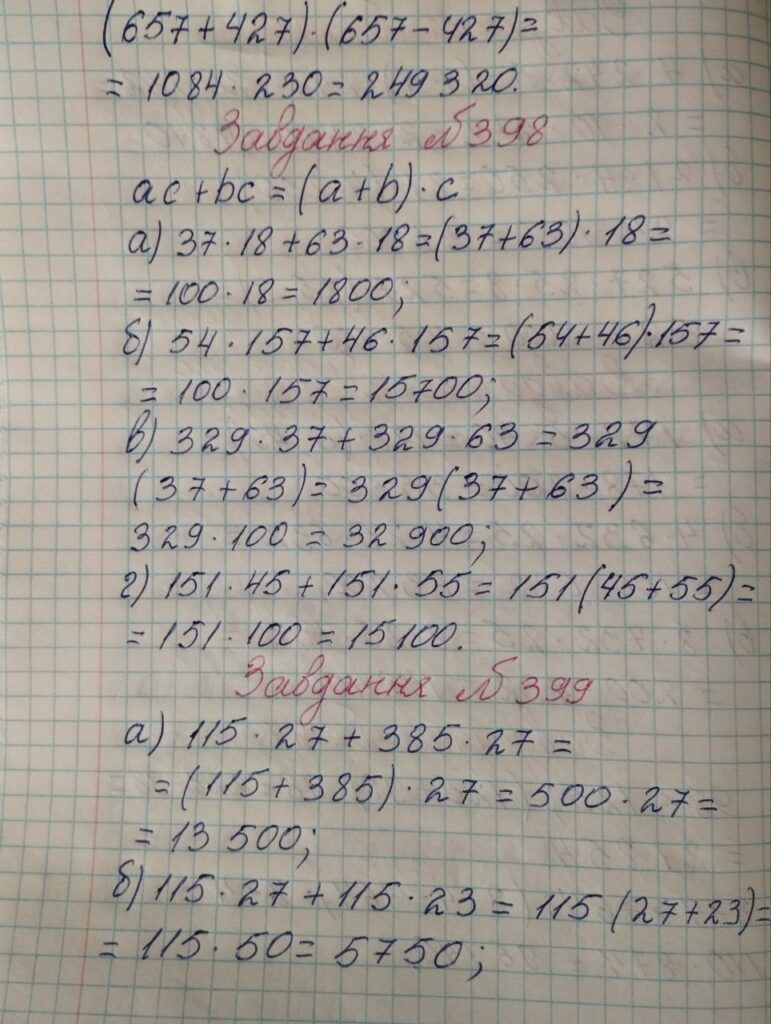 (657+427)·(657-427)=
= 1084 · 230 = 249 320.
Завдання №398
ac+bc=(a+b)·c
а) 37·18+63·18=(37+63)·18=
= 100·18 = 1800;
б) 54·157+46·157=(54+46)·157=
= 100 · 157 = 15700;
в) 329·37+329·63 = 329
(37+63) = 329(37+63) =
329·100 = 32 900;
г) 151·45+151·55 = 151(45+55)=
= 151·100 = 15100.
Завдання №399
а) 115·27+385·27 =
=(115+385)·27 = 500·27=
= 13 500;
б) 115·27+115·23 = 115(27+23)=
= 115·50= 5750;